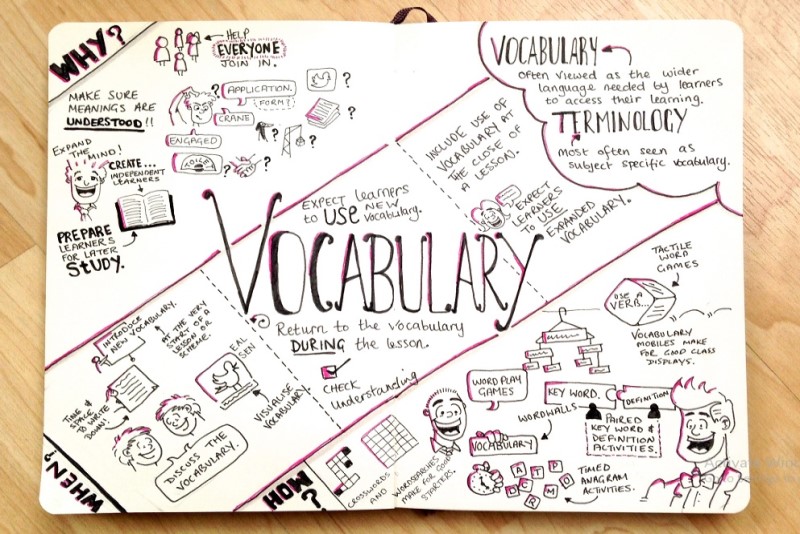 WHY?
HELP
EVERYONE
JOIN IN.
MAKE SURE
MEANINGS ARE
UNDERSTOOD!!
?
APPLICATION.
FORM?
CRANE
ENGAGED
TOILET
?
?
?
?
?
EXPAND
THE MIND!
CREATE...
INDEPENDENT
LEARNERS
PREPARE
LEARNERS
FOR LATER
STUDY.
VOCABULARY
Often viewed as the wider
language needed by learners
to access their learning.
TERMINOLOGY
Most often seen as
subject specific vocabulary.
INCLUDE USE OF
VOCABULARY AT
THE CLOSE OF
A LESSON.
EXPECT
LEARNERS
TO USE
EXPANDED
VOCABULARY.
EXPECT learners
to USE new
vocabulary.
VOCABULARY
Return to the vocabulary
DURING the lesson.
CHECK
Understanding
WHEN?
INTRODUCE
NEW VOCABULARY.
AT THE VERY
START OF A
LESSON OR
SCHEME.
TIME &
SPACE
TO WRITE
DOWN!
EAL
SEN
VISUALISE
VOCABULARY
DISCUSS THE
VOCABULARY.
HOW?
CROSSWORDS
AND
WORDSEARCHES
MAKE FOR GOOD
STARTERS.
WORD PLAY
GAMES
WORDWALLS
VOCABULARY
A T P
D C R M O
TIMED
ANAGRAM
ACTIVITIES.
KEY WORD.
DEFINITION
PAIRED
KEY WORD &
DEFINITION
ACTIVITIES.
TACTILE
WORD
GAMES
USE A
VERB...
VOCABULARY
MOBILES MAKE
FOR GOOD CLASS
DISPLAYS.